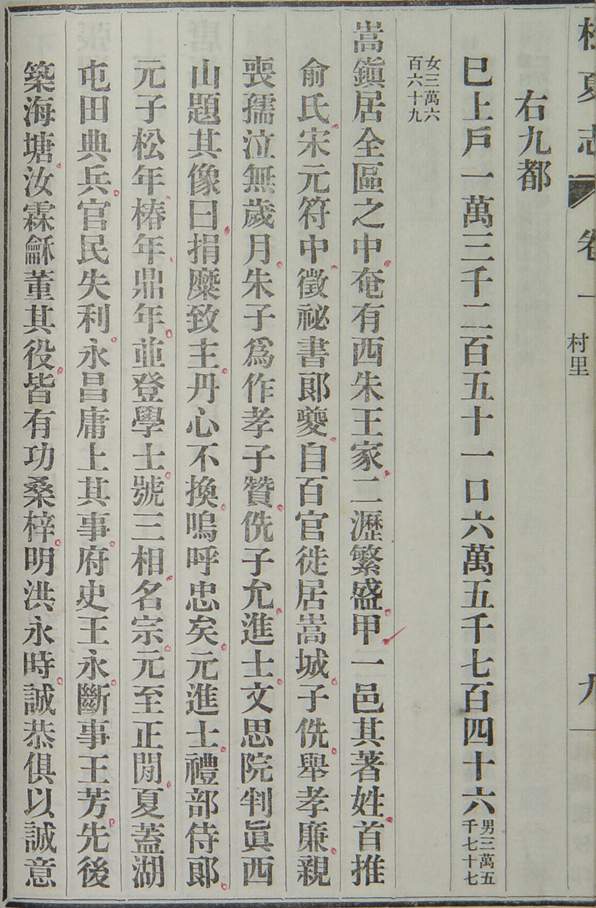 夏志
卷一
村里
九
右九都
巳上戶一萬三千二百五十一口六萬五千七百四十六男三萬五千七十七
女三萬六百六十九
嵩鎭居全區之中奄有西朱王家二瀝繁盛甲一邑其著姓首推
俞氏宋元符中徵祕書郞夔自百官徙居嵩城子侁舉孝廉親
喪孺泣無歲月朱子爲作孝子贊侁子允進士文思院判眞西
山題其像曰捐糜致主丹心不換嗚呼忠矣元進士禮部侍郞
元子松年椿年鼎年並登學士號三相名宗元至正閒夏蓋湖
屯田典兵官民失利永昌庸上其事府史王永斷事王芳先後
築海塘汝霖龢董其役皆有功桑梓明洪永時誠恭俱以誠意